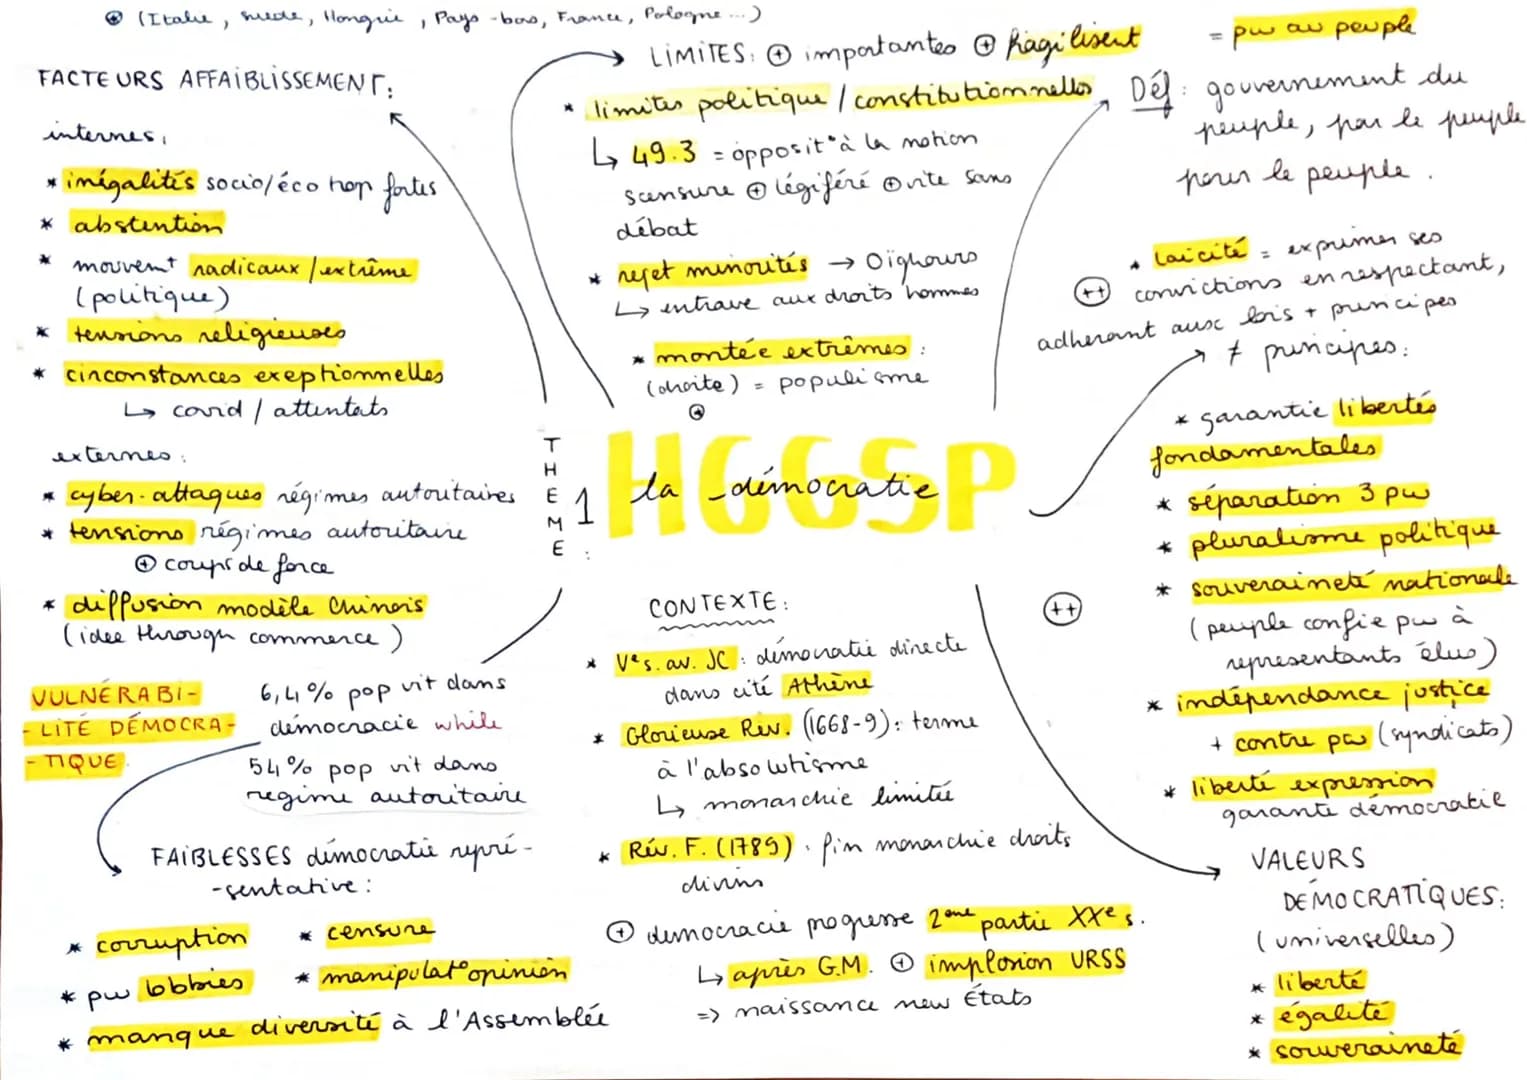 ⊕ (Italie, Suède, Hongrie, Pays-bas, France, Pologne...)
FACTEURS AFFAIBLISSEMENT:
internes:
* inégalités socio/éco trop fortes
* abstention
* mouvemt radicaux/extrême
(politique)
* tensions religieuses
* circonstances exeptionnelles
↳ covid / attentats
externes:
* cyber-attaques régimes autoritaires
* tensions régimes autoritaire
⊕ coups de force
* diffusion modèle Chinois
(idee through commerce)
VULNÉRABI-
-LITÉ DÉMOCRA-
-TIQUE
6,4% pop vit dans
démocracie while
54% pop vit dans
regime autoritaire
FAIBLESSES démocratie repré-
-sentative:
* corruption
* censure
* pw lobbies
* manipulat° opinion
* manque diversité à l'Assemblée
LIMITES: ⊕ importantes ⊕ fragilisent
* limites politique / constitutionnelles
↳ 49.3 = opposit° à la motion
scensure ⊕ légiféré ⊕ vite sans
débat
* rejet minorités → Oïghours
↳ entrave aux droits hommes
* montée extrêmes:
(droite) = populisme
⊕
THEME 1: la démocratie
HGGSP
CONTEXTE:
* Ve s. av. JC: démocratie directe
dans cité Athène
* Glorieuse Rév. (1668-9): terme
à l'absolutisme
↳ monarchie limitée
* Rév. F. (1789): fin monarchie droits
divins
⊕ democracie progresse 2eme partie XXe s.
↳ après G.M. ⊕ implosion URSS
=> naissance new États
= pw au peuple
Déf: gouvernement du
peuple, par le peuple
pour le peuple.
* laïcité = exprimer ses
(++) convictions en respectant,
adherant aux lois + principes
≠ principes:
* garantie libertés
fondamentales
* séparation 3 pw
* pluralisme politique
* souveraineté nationale
(++)
(peuple confie pw à
représentants élus)
* indépendance justice
+ contre pw (syndicats)
* liberté expression
garante démocratie
VALEURS
DÉMOCRATIQUES:
(universelles)
* liberté
* égalité
* souveraineté